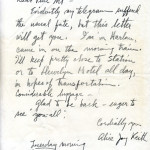 Dear Mr.
Evidently my telegram suffered
the usual fate, but this letter
will get you. I'm in Harlan,
came in on the morning train.
I'll keep pretty close to Station
or to Llewelyn Hotel all day,
in hopes of transportation.
Considerable luggage —
Glad to be back - eager to
see "you-all"!
Cordially yrs,
Alice Joy Keith
Tuesday morning